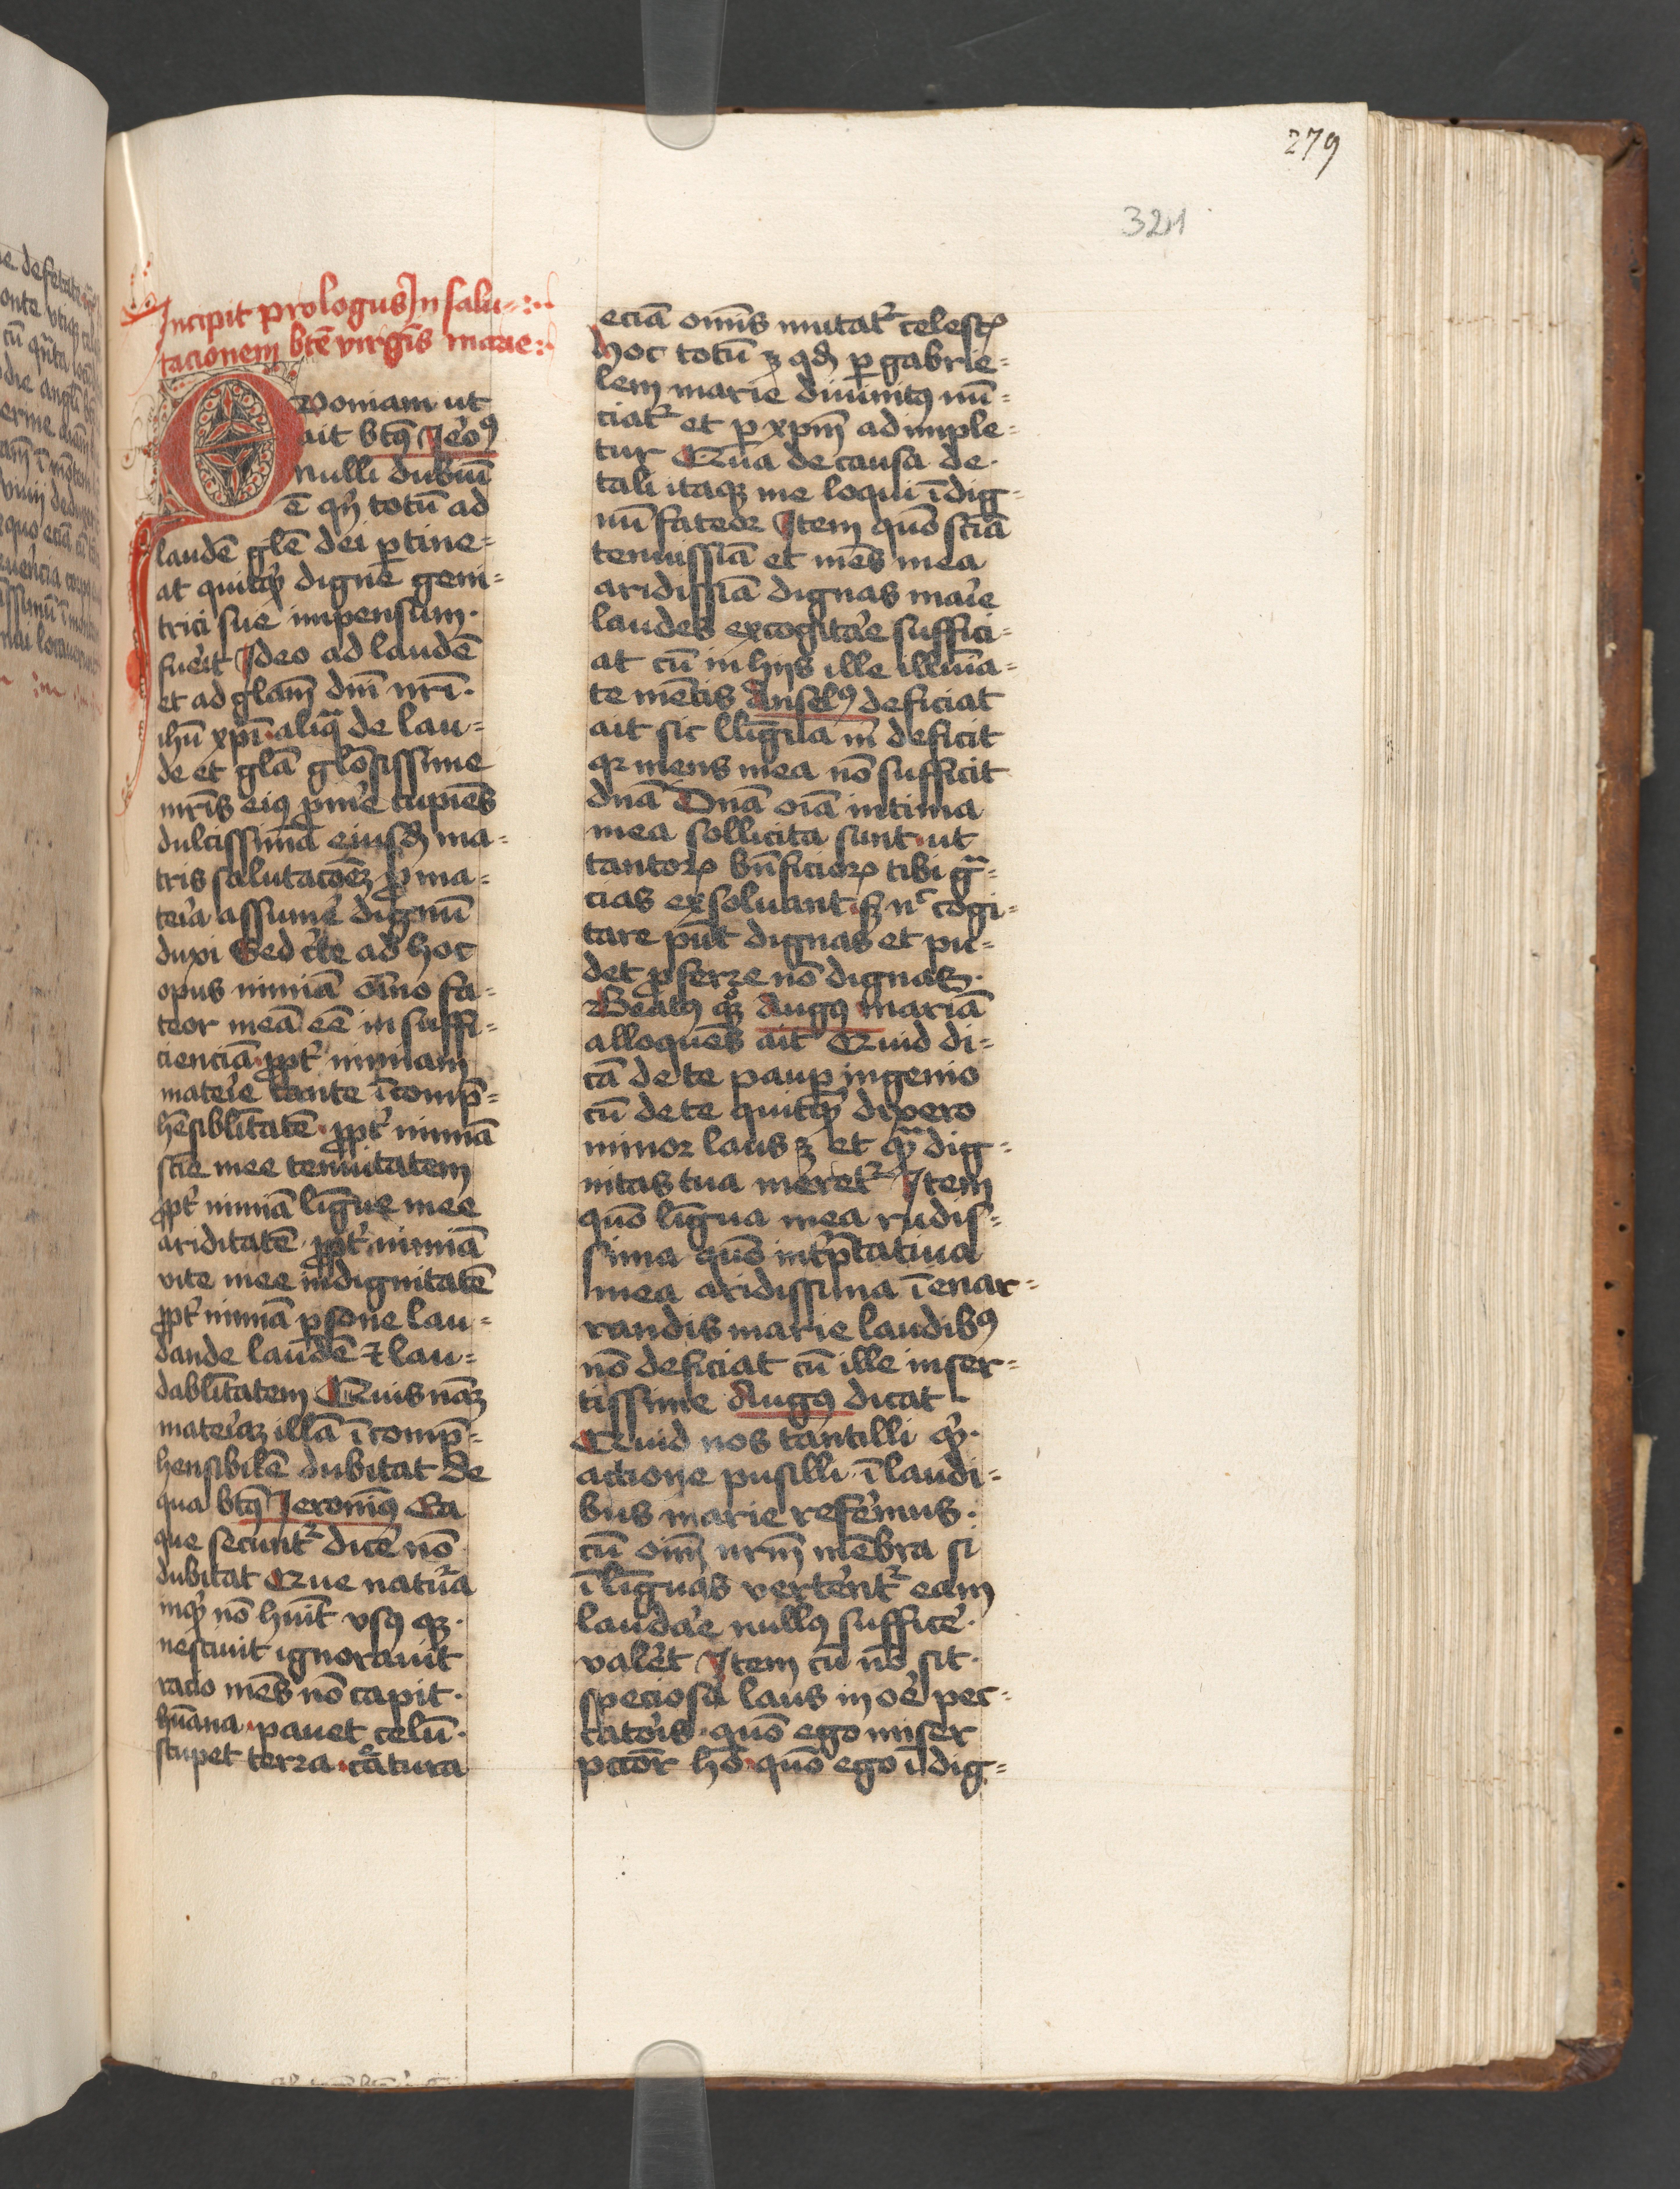 279
321
Incipit prologus In salu=
tacionem btē virgīs marie
Qvoniam ut
ait btꝰ Ieroꝰ
nulli dubiū
ē qn̄ totū ad
laudē gl̄e dei ꝑtine=
at quitqͥd digne geni=
trici sue impensum.
fuerit Ideo ad laudē
et ad glam̄ dn̄i nr̄i.
ihū xp̄i aliqͣ de lau=
de et glā gl̄osissime
mr̄is eiꝰ ꝓmͤe cupiēs
dulcissimā eiusdē ma=
tris salutacōeꝫ ꝓ ma=
teria assumͤe dignū
duxi Sed cͭte ad hoc
opus nimiā om̄ino fa=
teor meā eē in suffi=
cienciā ꝓptͥ nimiam
materie tante īcomp̄=
hēsiblītatē ꝓptͥ nimiā
scīe mee tenuitatem
ꝓptͥ nimiā lingue mee
ariditatē ꝓptͥ nimiā
vite mee indignitatē
ꝓptͥ nimiā ꝑsone lau=
dande laudē ⁊ lau=
dablītatem Quis naꝫ
materiaꝫ illā īcomp̄=
hensibilē dubitat de
qua btꝰ Ieronimꝰ Ea
que secuntͬ dicͤe nō
dubitat Que natura
inqͥd nō huit vsꝰ qꝫ.
nescivit ignoravit
racio mēs nō capit.
hūana pavet celū.
stupet terra cͤatura
eciā om̄is mutatͬ celestꝭ
hoc totū ꝫ qd̄ ꝑ gabrie=
lem marie divinitꝰ nū=
ciatͬ et ꝑ xpm̄ adimple=
tur Qua de causa de.
tali itaqꝫ me loqui īdig=
nū fateor Item quō sciā
tenuissīa et mēs mea
aridissīa dignas marie
laudes excogitare suffici=
at cū in hijs ille illuīa=
te mētis Anselꝰ deficiat
ait sic Lligua m̄ deficit
qꝛ mens mea nō sufficit
dn̄a Dn̄a oīa intima
mea sollicita sunt ut
tantoꝝ bn̄ficioꝝ tibi gͣ=
cias exsoluant sꝫ nͨ cogi=
tare pn̄t dignas et pu=
det ꝓferre nō dignas.
Beatꝰ qꝫ Augꝰ mariā
alloquēs ait Quid di=
cā de te pauꝑ ingenio
cū de te quitqͥd dixero
minor laus ꝫ et qͣ dig=
nitas tua meretͬ Item
quō lingua mea rudis=
sima quō intp̄tativa
mea aridissima ī enar=
randis marie laudibꝰ
nō deficiat cū ille inser=
tissime Augꝰ dicat
Quid nos tantilli qͥd.
actione pusilli ī laudi=
bus marie referemus.
cū oīm̄ nr̄m̄ mēbra si
ī linguas verterentͬ eam
laudare nullꝰ sufficͤe.
valeret Item cū nō sit.
speciosa laus in oͤ pec=
catoris quō ego miser
pctōr hō quō ego īdig=